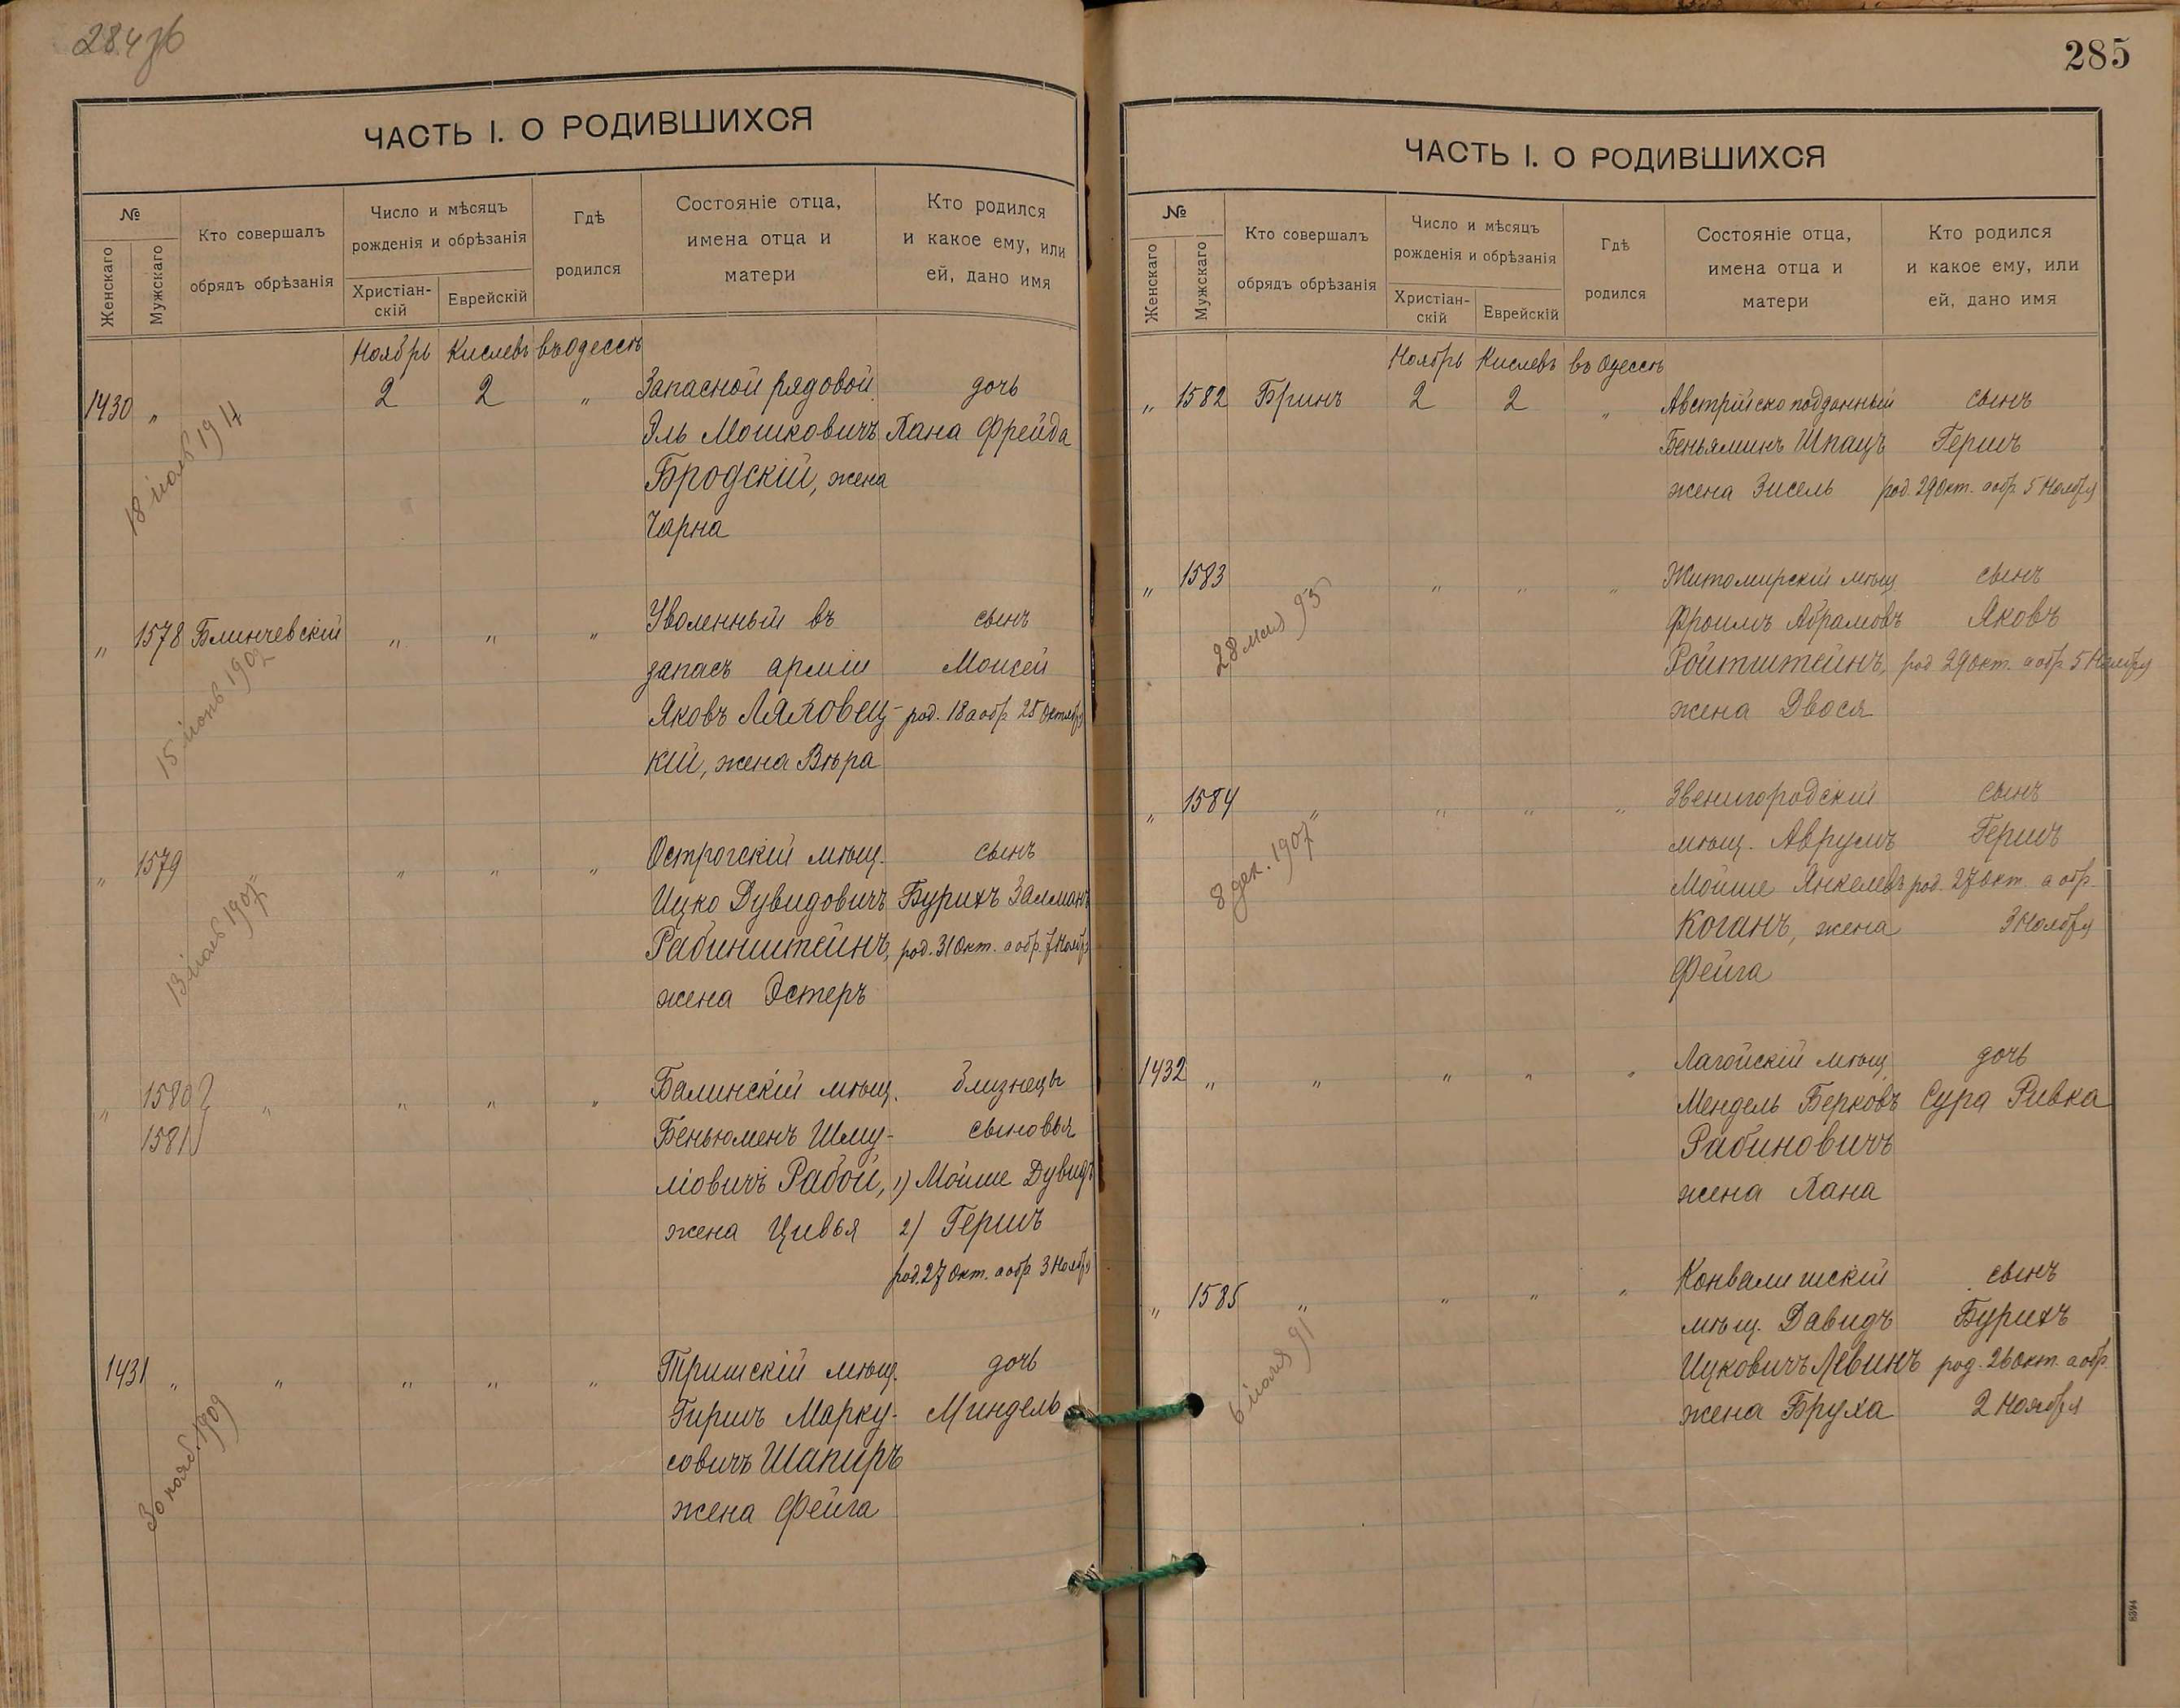 285
ЧАСТЬ I. О РОДИВШИХСЯ
№
Женскаго
Мужскаго
Кто совершалъ
обрядъ обрѣзанія
Число и мѣсяцъ
рожденія и обрѣзанія
Христіан-
скій
Еврейскій
Гдѣ
родился
Состояніе отца,
имена отца и
матери
Кто родился
и какое ему, или
ей, дано имя
Ноябрь Кислевъ въ Одессѣ
1430 „ 2 2 „ Запасной рядовой дочь
Эль Мошковичъ Хана Фрейда
Бродскій, жена
Чарна
„ 1578 Блинчевскій „ „ „ Уволенный въ сынъ
запасъ арміи Моисей
Яковъ Ляховец- род. 18 а обр. 25 Октября
кій, жена Вѣра
15 іюнь 1902
„ 1579 „ „ „ Острогскій мѣщ. сынъ
Ицко Дувидовичъ Бурихъ Залманъ
Рабинштейнъ, род. 31 Окт. а обр. 7 Ноября
жена Эстеръ
„ 1580 „ „ „ „ Балинскій мѣщ. близнецы
1581 Беньюменъ Шму- сыновья
ліовичъ Рабой, 1) Мойше Дувидъ
жена Цивья 2) Гершъ
род. 27 Окт. а обр. 3 Ноября
1431 „ „ „ „ „ Тришскій мѣщ. дочь
Гиршъ Марку- Миндель
совичъ Шапиръ
жена Фейга
30 нояб. 1909
ЧАСТЬ I. О РОДИВШИХСЯ
№
Женскаго
Мужскаго
Кто совершалъ
обрядъ обрѣзанія
Число и мѣсяцъ
рожденія и обрѣзанія
Христіан-
скій
Еврейскій
Гдѣ
родился
Состояніе отца,
имена отца и
матери
Кто родился
и какое ему, или
ей, дано имя
Ноябрь Кислевъ въ Одессѣ
„ 1582 Бринъ 2 2 „ Австрійско подданный сынъ
Беньяминъ Шпацъ Гершъ
жена Зисель род. 29 Окт. а обр. 5 Ноября
„ 1583 „ „ „ Житомирскій мѣщ. сынъ
Фроимъ Абрамовъ Яковъ
Ройтштейнъ, род. 29 Окт. а обр. 5 Ноября
жена Двося
„ 1584 „ „ „ „ Звенигородскій сынъ
мѣщ. Аврумъ Гершъ
Мойше Янкелевъ род. 27 окт. а обр.
Коганъ, жена 3 Ноября
Фейга
8 дек. 1907
1432 „ „ „ „ „ Лагойскій мѣщ. дочь
Мендель Берковъ Сура Ривка
Рабиновичъ
жена Хана
„ 1585 „ „ „ „ Конвалишскій сынъ
мѣщ. Давидъ Бурихъ
Ицковичъ Левинъ род. 26 окт. а обр.
жена Бруха 2 Ноября
8394